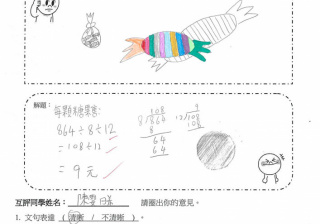 解題：
每顆糖果售：
864÷8÷12
=108÷12
=9元
108
8/864
8
64
64
9
12/108
108
互評同學姓名： 請圈出你的意見。
1. 文句表達 ( 清晰 / 不清晰 )。